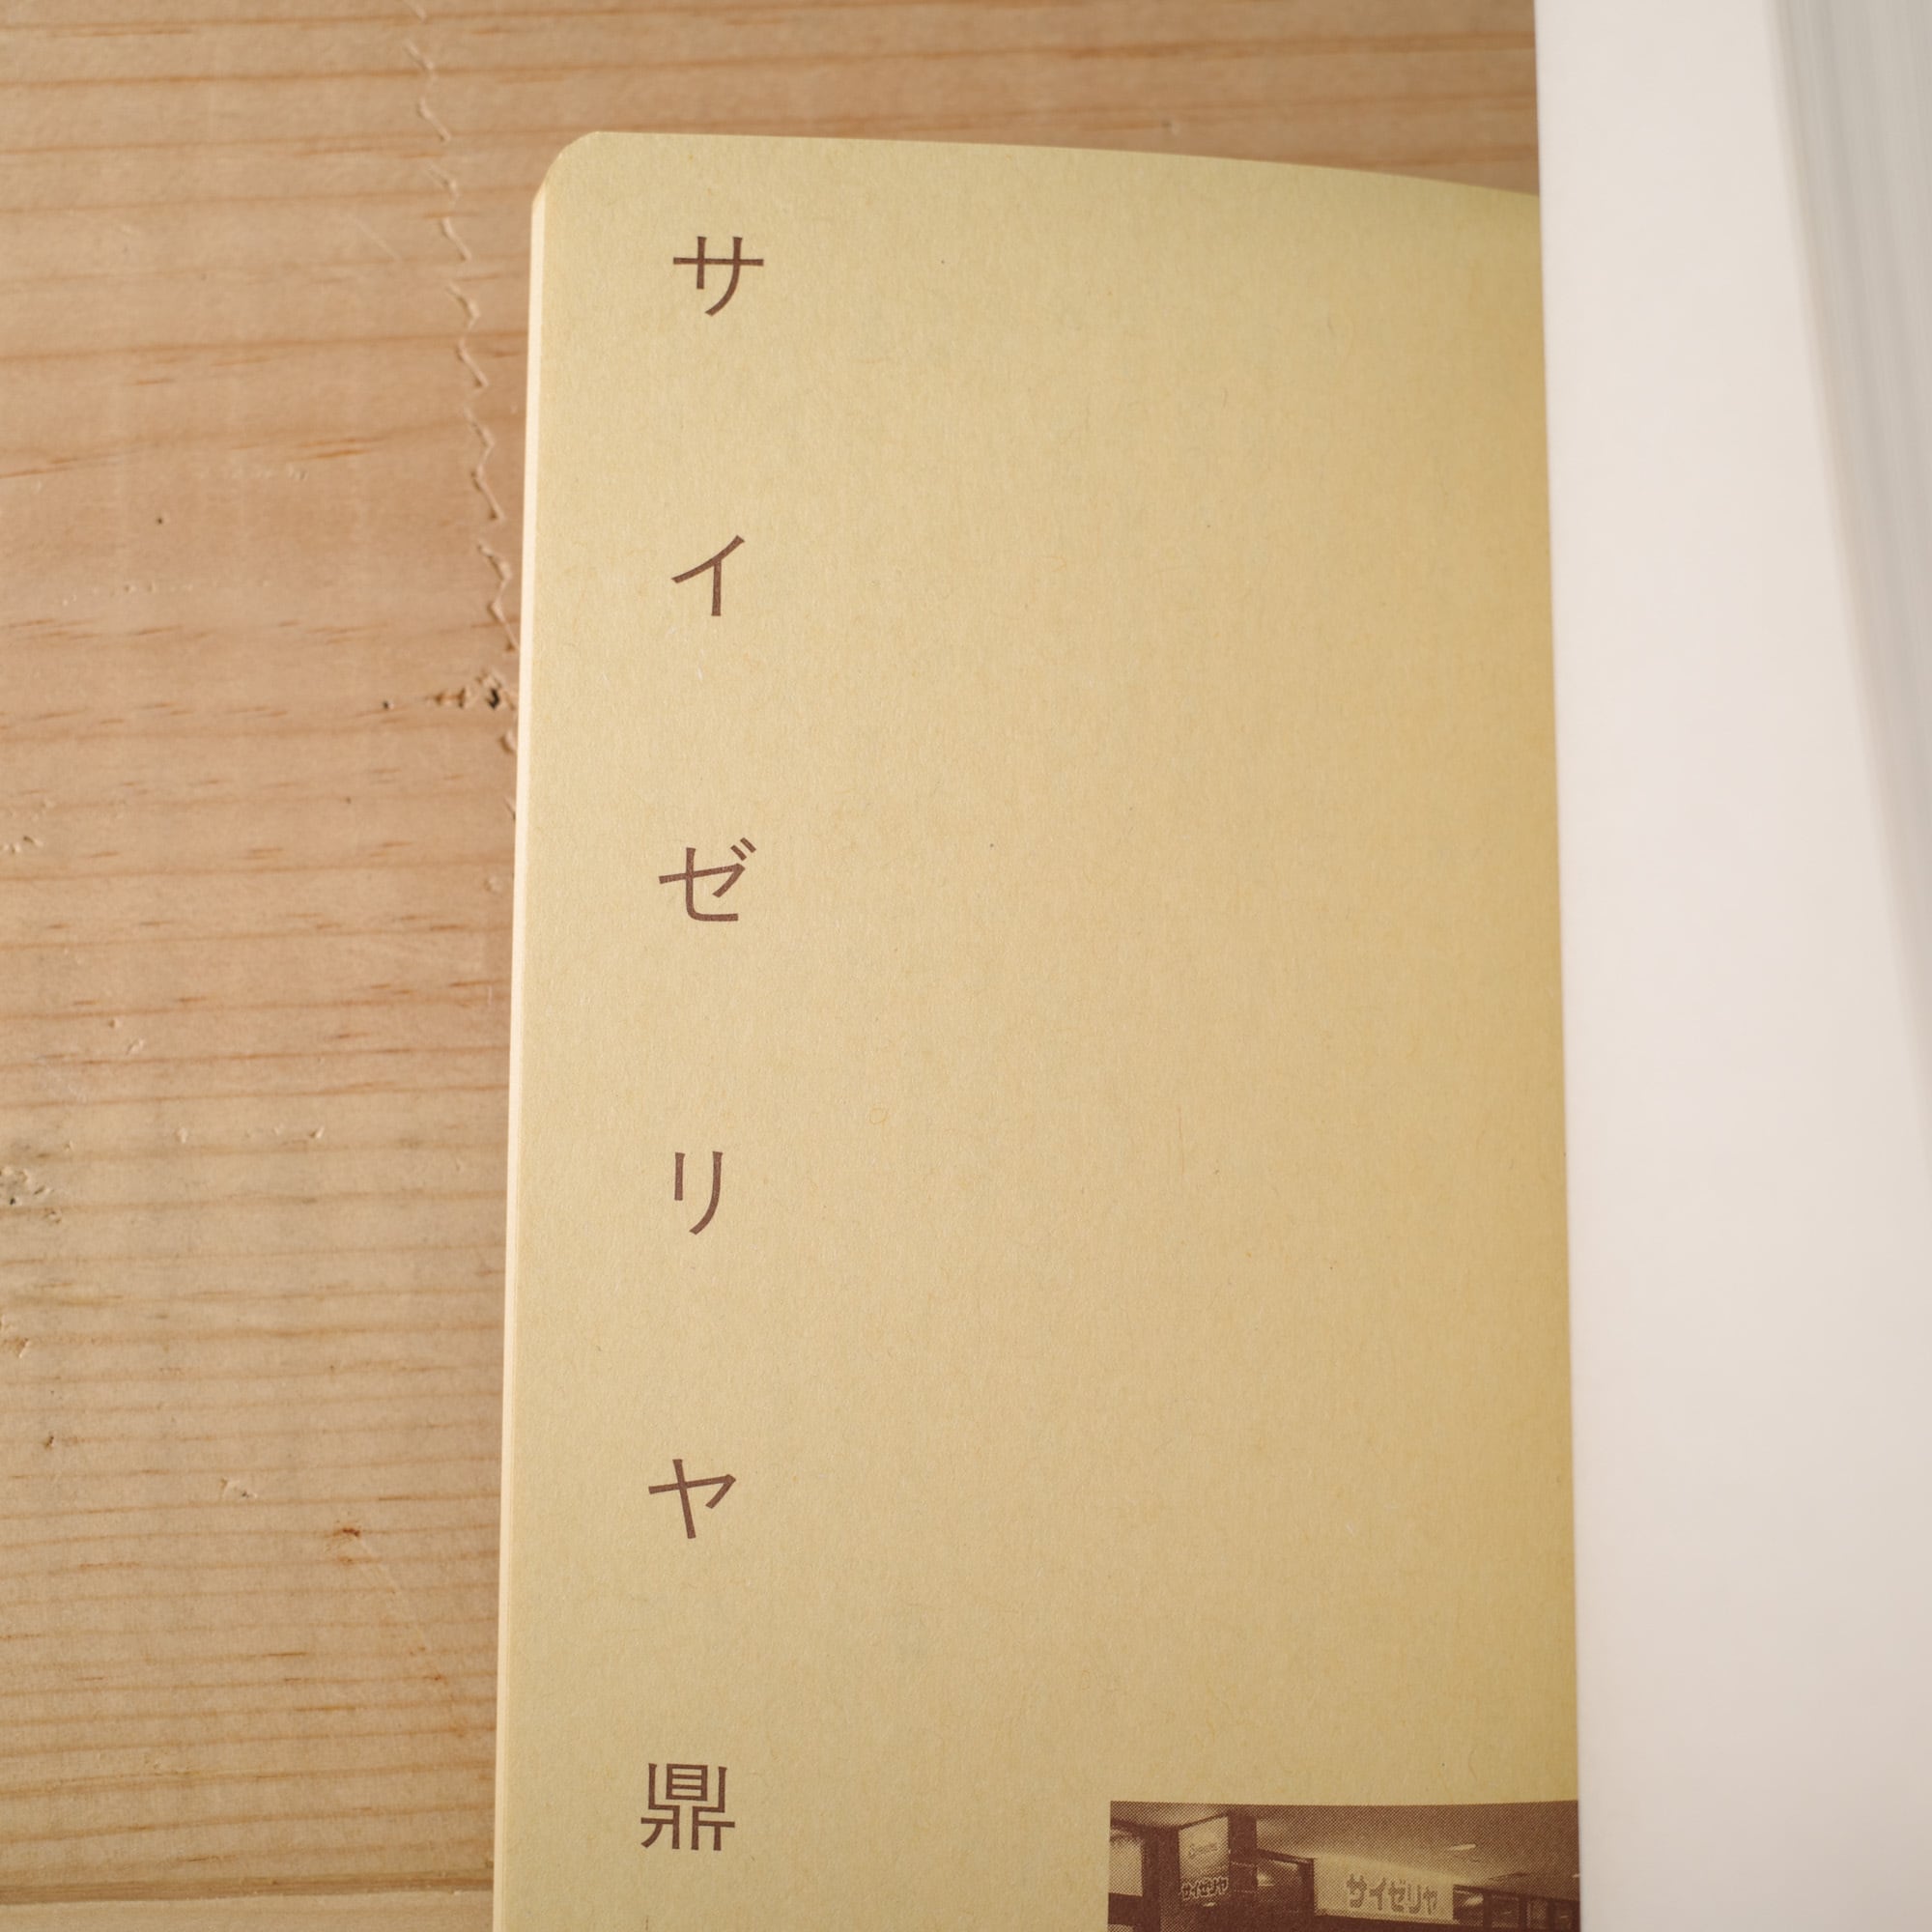 サイゼリヤ鼎
サイゼリヤ
サイゼリヤ